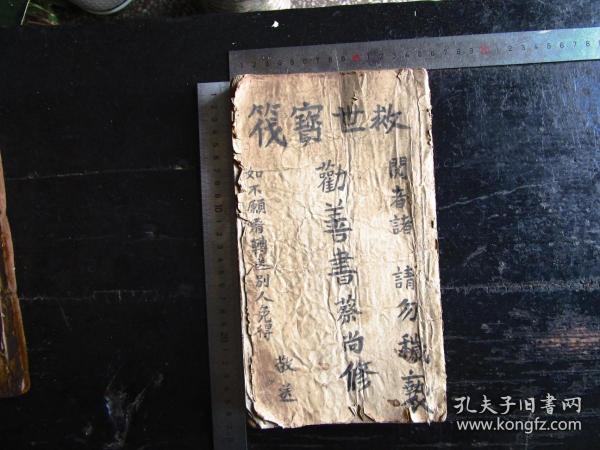 救世寶筏
閱者諸 請勿穢褻
勸善書蔡尚修
如不願看轉送別人免得
敬送
孔夫子旧书网
www.kongfz.com